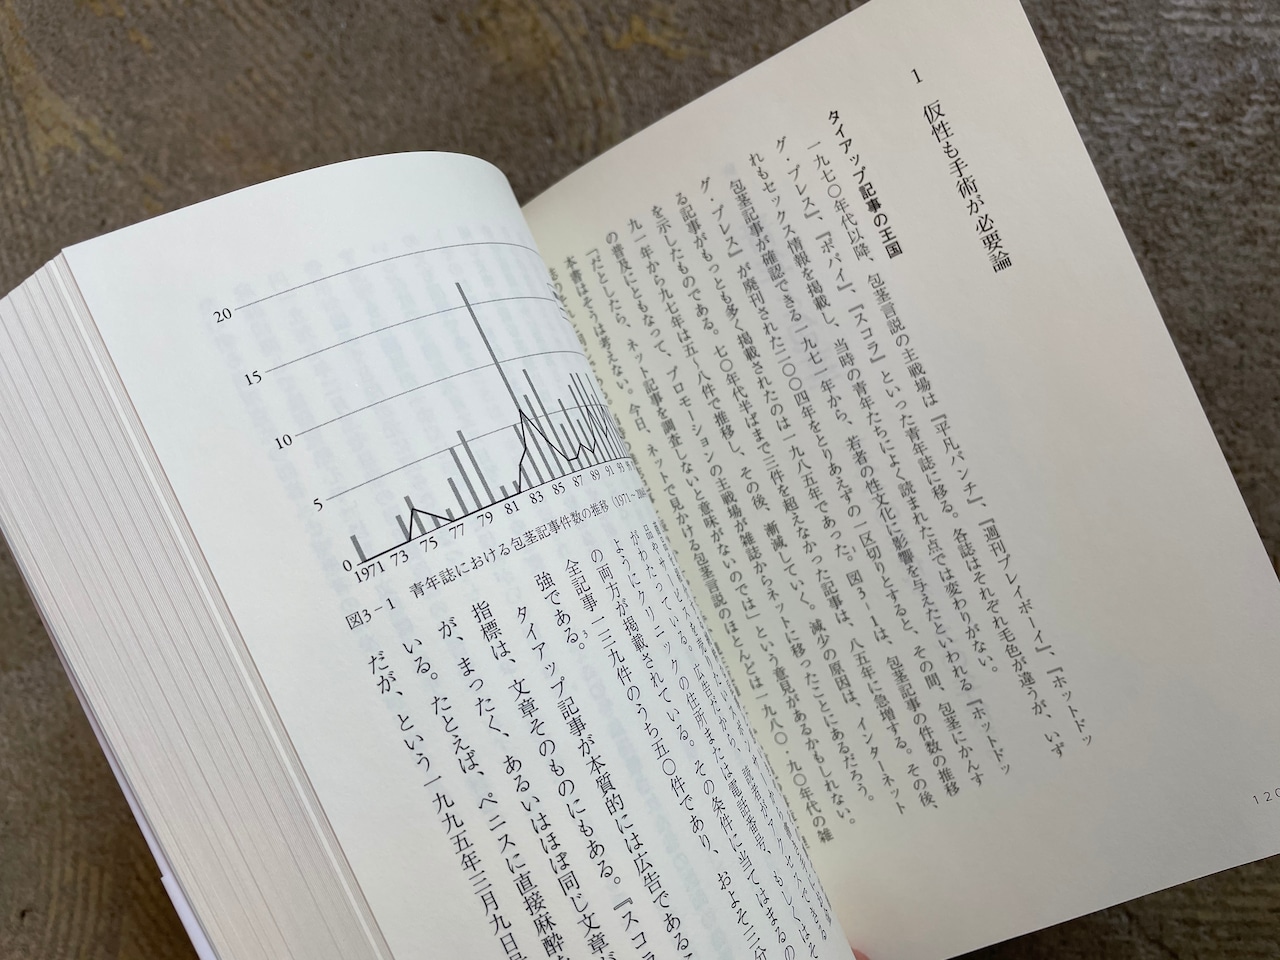 1 仮性も手術が必要論
タイアップ記事の王国
一九七〇年代以降、包茎言説の主戦場は『平凡パンチ』、『週刊プレイボーイ』、『ホットドッ
グ・プレス』、『ポパイ』、『スコラ』といった青年誌に移る。各誌はそれぞれ毛色が違うが、いず
れもセックス情報を掲載し、当時の青年たちによく読まれた点では変わりがない。
包茎記事が確認できる一九七一年から、若者の性文化に影響を与えたといわれる『ホットドッ
グ・プレス』が廃刊された二〇〇四年をとりあえずの一区切りとすると、その間、包茎にかんす
る記事がもっとも多く掲載されたのは一九八五年であった。図3-1は、包茎記事の件数の推移
を示したものである。七〇年代半ばまで三件を超えなかった記事は、八五年に急増する。その後、
九一年から九七年は五〜八件で推移し、その後、漸減していく。減少の原因は、インターネット
の普及にともなって、プロモーションの主戦場が雑誌からネットに移ったことにあるだろう。
「だとしたら、ネット記事を調査しないと意味がないのでは」という意見があるかもしれない。
本書はそうは考えない。今日、ネットで見かける包茎言説のほとんどは一九八〇・九〇年代の雑
120
20
15
10
5
0
1971 73 75 77 79 81 83 85 87 89 91 93
図3-1 青年誌における包茎記事件数の推移
ようにクリニックの住所または電話番号、
の両方が掲載されている。その条件に当てはまるの
全記事一三九件のうち五〇件であり、およそ三分
強である。3
タイアップ記事が本質的には広告であるこ
指標は、文章そのものにもある。『スコラ
が、まったく、あるいはほぼ同じ文章が
いる。たとえば、ペニスに直接麻酔
だが、という一九九五年三月九日